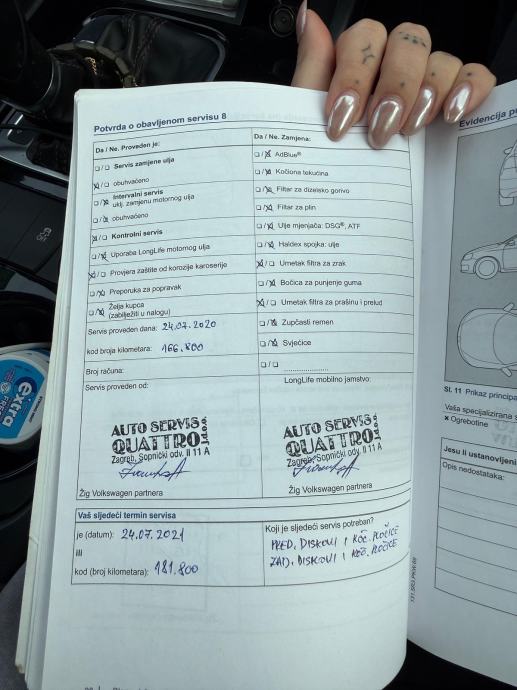 Potvrda o obavljenom servisu 8
Da / Ne. Proveden je:
☐ / ☐ Servis zamjene ulja
☒ / ☐ obuhvaćeno
☐ / ☒ Intervalni servis
uklj. zamjenu motornog ulja
☐ / ☒ obuhvaćeno
☒ / ☐ Kontrolni servis
☐ / ☒ Uporaba LongLife motornog ulja
☒ / ☐ Provjera zaštite od korozije karoserije
☐ / ☒ Preporuka za popravak
☐ / ☒ Želja kupca
(zabilježiti u nalogu)
Servis proveden dana: 24.07.2020
kod broja kilometara: 166.800
Broj računa:
Servis proveden od:
AUTO SERVIS
QUATTRO j.d.o.o.
Zagreb, Sopnički odv. II 11 A
Žig Volkswagen partnera
Da / Ne. Zamjena:
☐ / ☒ AdBlue®
☐ / ☒ Kočiona tekućina
☐ / ☒ Filtar za dizelsko gorivo
☐ / ☒ Filtar za plin
☐ / ☒ Ulje mjenjača: DSG®, ATF
☐ / ☒ Haldex spojka: ulje
☒ / ☐ Umetak filtra za zrak
☐ / ☒ Bočica za punjenje guma
☒ / ☐ Umetak filtra za prašinu i pelud
☐ / ☒ Zupčasti remen
☐ / ☒ Svjećice
☐ / ☐ ....................
LongLife mobilno jamstvo:
AUTO SERVIS
QUATTRO j.d.o.o.
Zagreb, Sopnički odv. II 11 A
Žig Volkswagen partnera
Vaš sljedeći termin servisa
je (datum): 24.07.2021
ili
kod (broj kilometara): 181.800
Koji je sljedeći servis potreban?
PRED. DISKOVI I KOČ. PLOČICE
ZAD. DISKOVI I KOČ. PLOČICE
Evidencija
Sl. 11 Prikaz
Vaša specijalizirana
× Ogrebotine
Jesu li ustanovljeni
Opis nedostataka:
extra